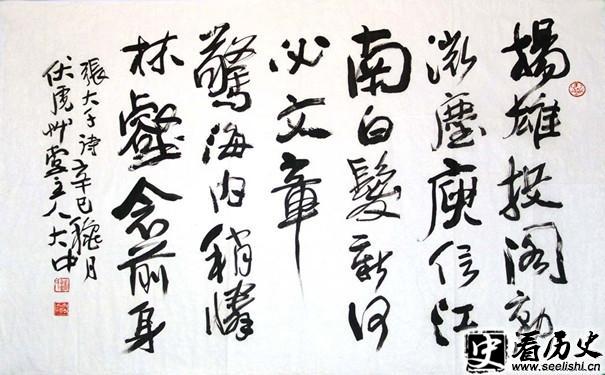 揚雄投阁動
微塵庾信江
南白髮新何
必文章
驚海内稍
林壑念前身
張大千诗辛巳穐月
伏虎艸堂主人大中
史 看历史
www.seelishi.cn